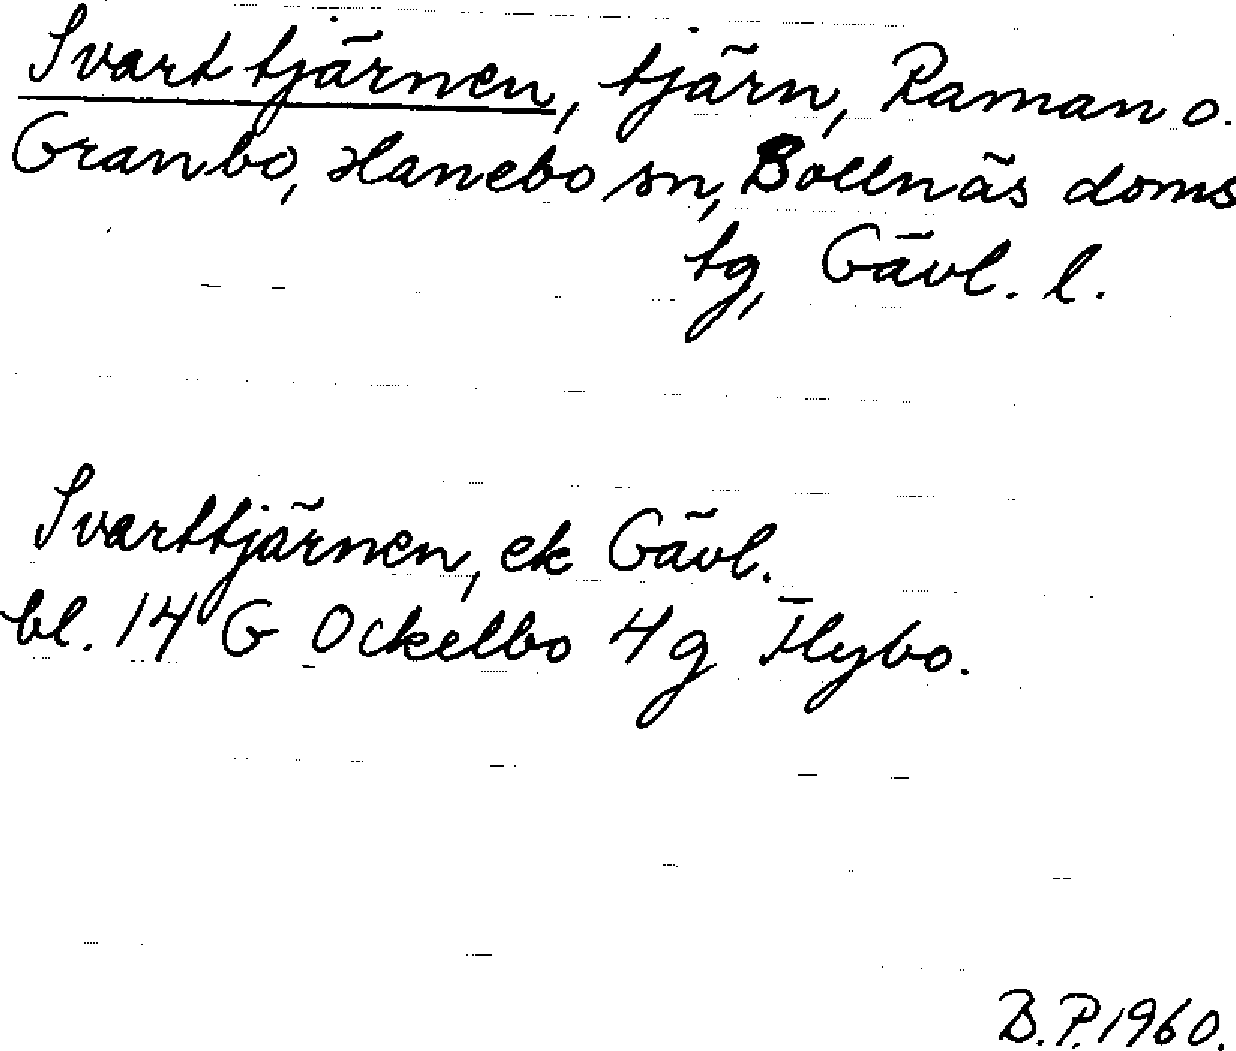 Svarttjärnen, tjärn, Raman o.
Granbo, Hanebo sn, Bollnäs doms
tg, Gävl. l.
Svarttjärnen, ek Gävl.
bl. 14 G Ockelbo 4g Flybo.
B.P. 1960.